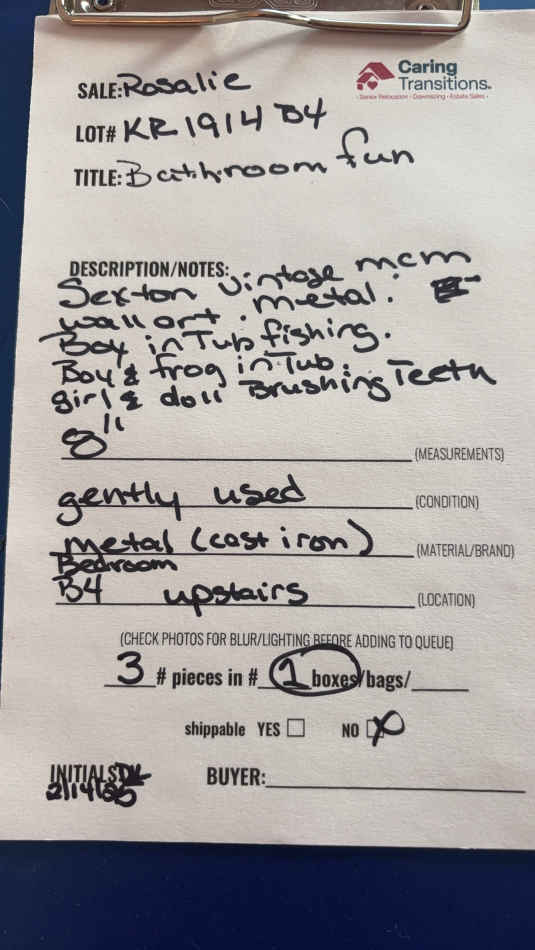 Caring
Transitions.
• Senior Relocation • Downsizing • Estate Sales •
SALE: Rosalie
LOT# KR1914 B4
TITLE: Bathroom fun
DESCRIPTION/NOTES:
Sexton vintage mcm
wall art. metal.
Boy in Tub fishing.
Boy & frog in Tub.
girl & doll Brushing Teeth
8"
(MEASUREMENTS)
gently used (CONDITION)
metal (cast iron) (MATERIAL/BRAND)
Bedroom
B4 upstairs (LOCATION)
(CHECK PHOTOS FOR BLUR/LIGHTING BEFORE ADDING TO QUEUE)
3 # pieces in # 1 boxes/bags/
shippable YES NO X
INITIALS BUYER:
2/14/25